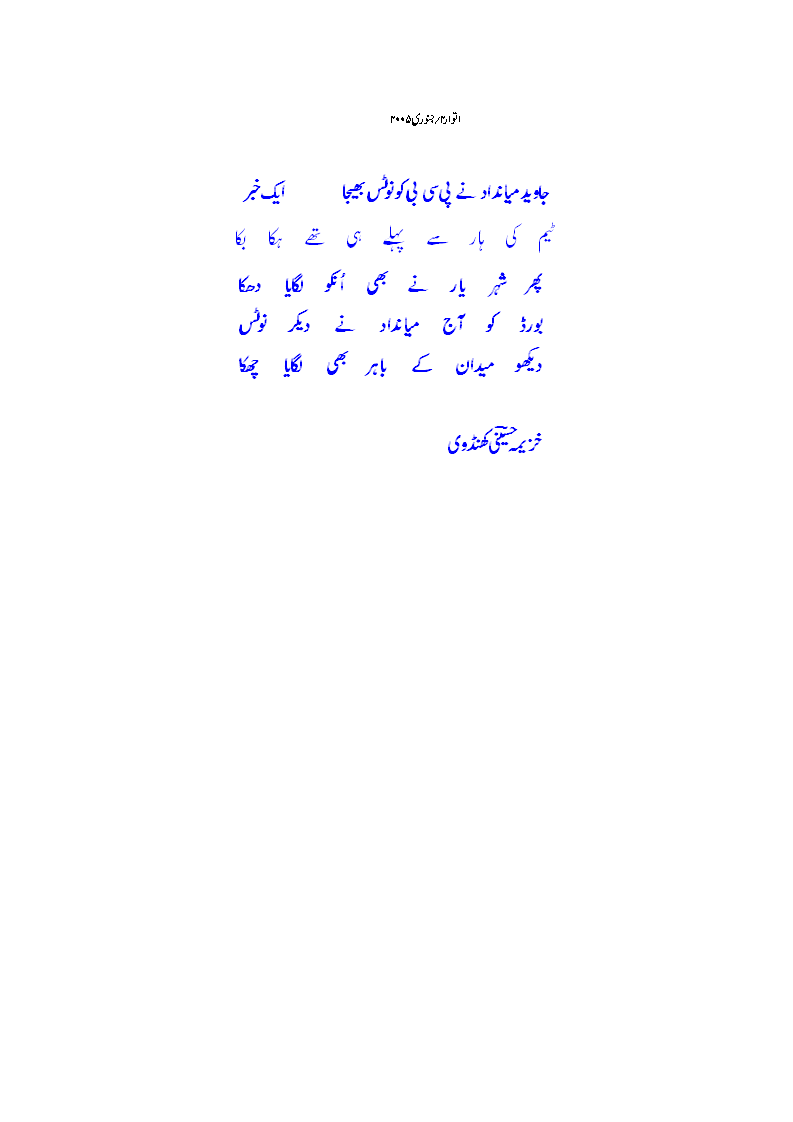 اتوار ۲/جنوری ۲۰۰۵
جاوید میانداد نے پی سی بی کو نوٹس بھیجا ایک خبر
ٹیم کی ہار سے پہلے ہی تھے ہکا بکا
پھر شہر یار نے بھی اُنکو لگایا دھکا
بورڈ کو آج میانداد نے دیکر نوٹس
دیکھو میدان کے باہر بھی لگایا چھکا
خزیمہ حسینی کھنڈوی